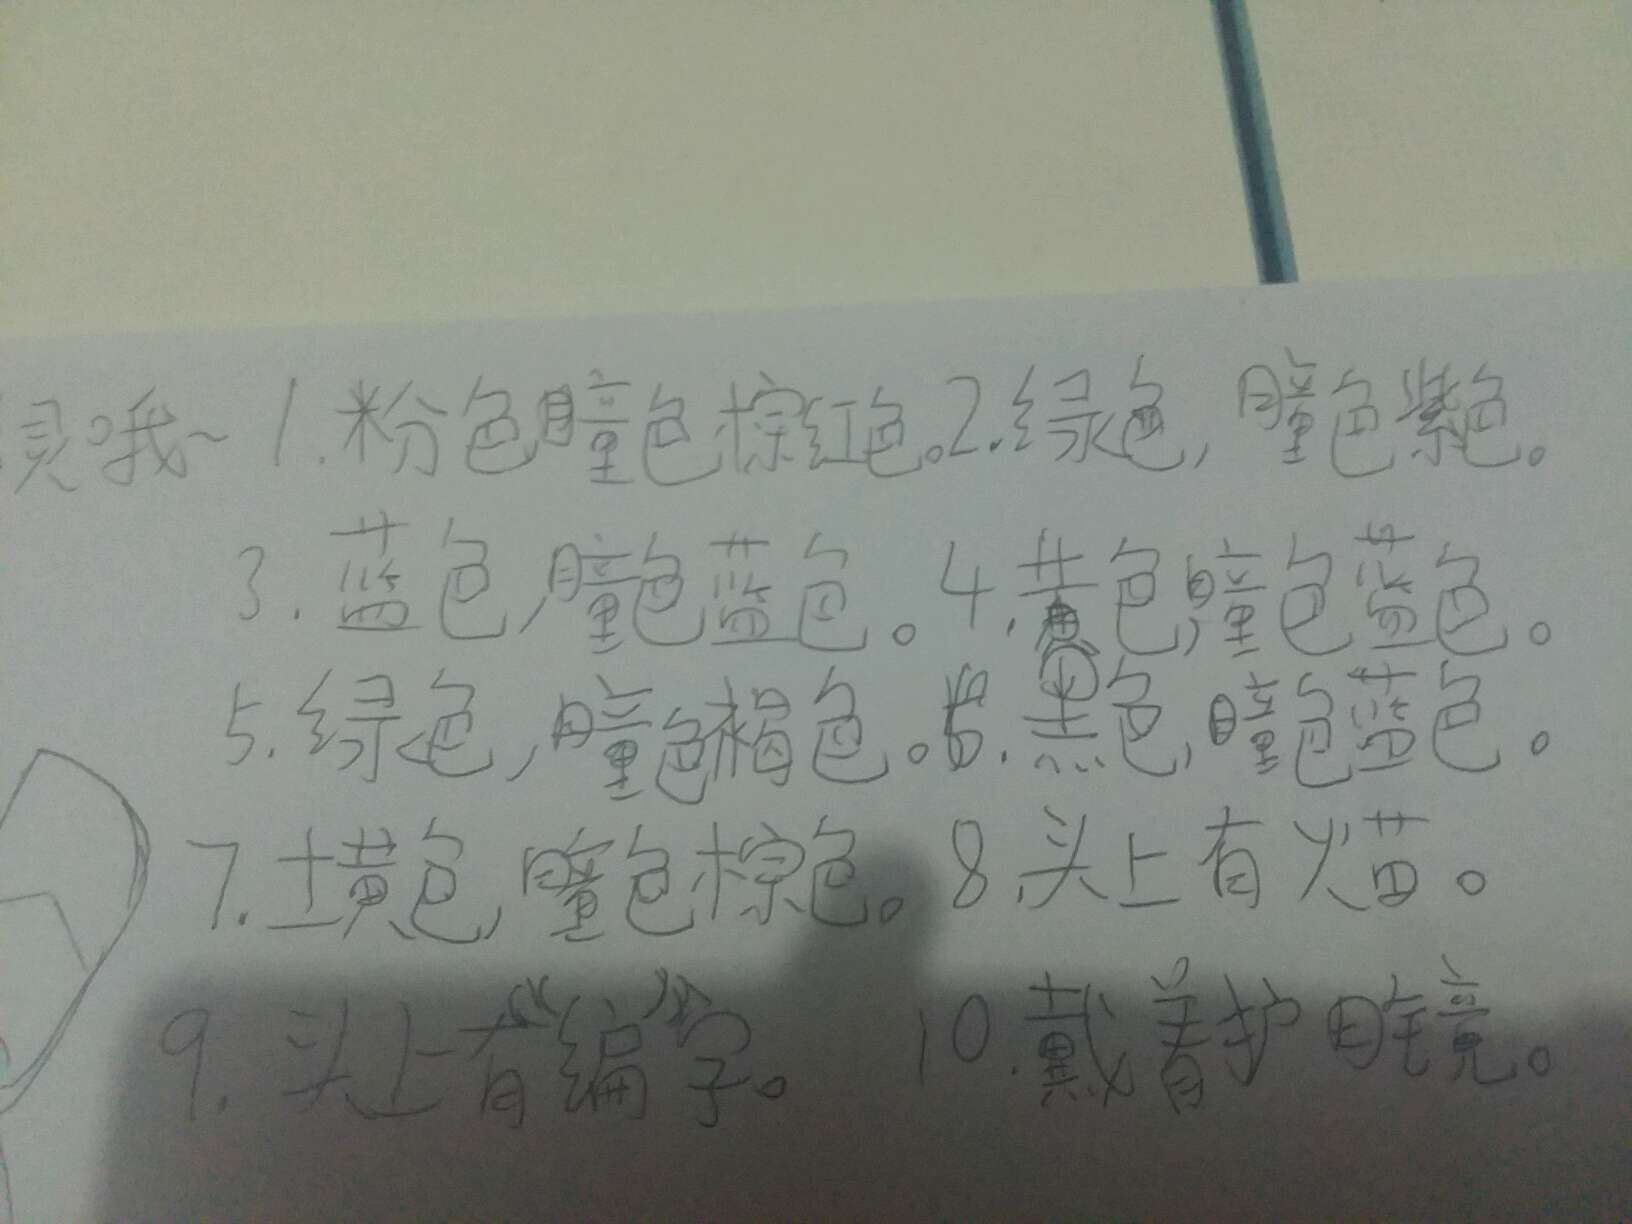 灵哦~ 1.粉色瞳色棕红色。2.绿色,瞳色紫色。
3.蓝色,瞳色蓝色。4.黄色,瞳色蓝色。
5.绿色,瞳色褐色。6.黑色,瞳色蓝色。
7.土黄色,瞳色棕色。8.头上有火苗。
9.头上有“编”字。 10.戴着护眼镜。